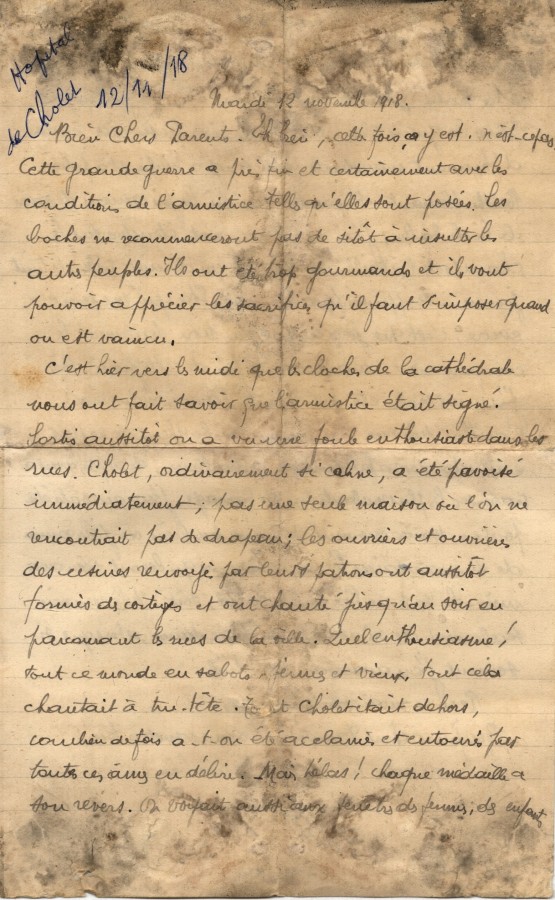 Hopital
de Cholet 12/11/18
Mardi 12 novembre 1918.
Bien Chers Parents. Eh bien, cette fois ça y est. n'est-ce pas
Cette grande guerre a pris fin et certainement avec les
conditions de l'armistice telles qu'elles sont posées. Les
boches ne recommenceront pas de sitôt à insulter les
autres peuples. Ils ont été trop gourmands et ils vont
pouvoir apprécier les sacrifices qu'il faut s'imposer quand
on est vaincu.
C'est hier vers le midi que les cloches de la cathédrale
nous ont fait savoir que l'armistice était signé.
Sortis aussitôt on a vu une foule enthousiaste dans les
rues. Cholet, ordinairement si calme, a été pavoisé
immédiatement, pas une seule maison où l'on ne
rencontrait pas de drapeau; les ouvriers et ouvrières
des usines renvoyé par leurs patrons ont aussitôt
formés des cortèges et ont chanté jusqu'au soir en
parcourant les rues de la ville. Quel enthousiasme!
tout ce monde en sabots jeunes et vieux, tout cela
chantait à tue-tête. Tout Cholet était dehors,
combien de fois a-t-on été aclamés et entourés par
toutes ces âmes en délire. Mais hélas! chaque médaille a
son revers. On voyait aussi aux fenêtres des femmes, des enfants